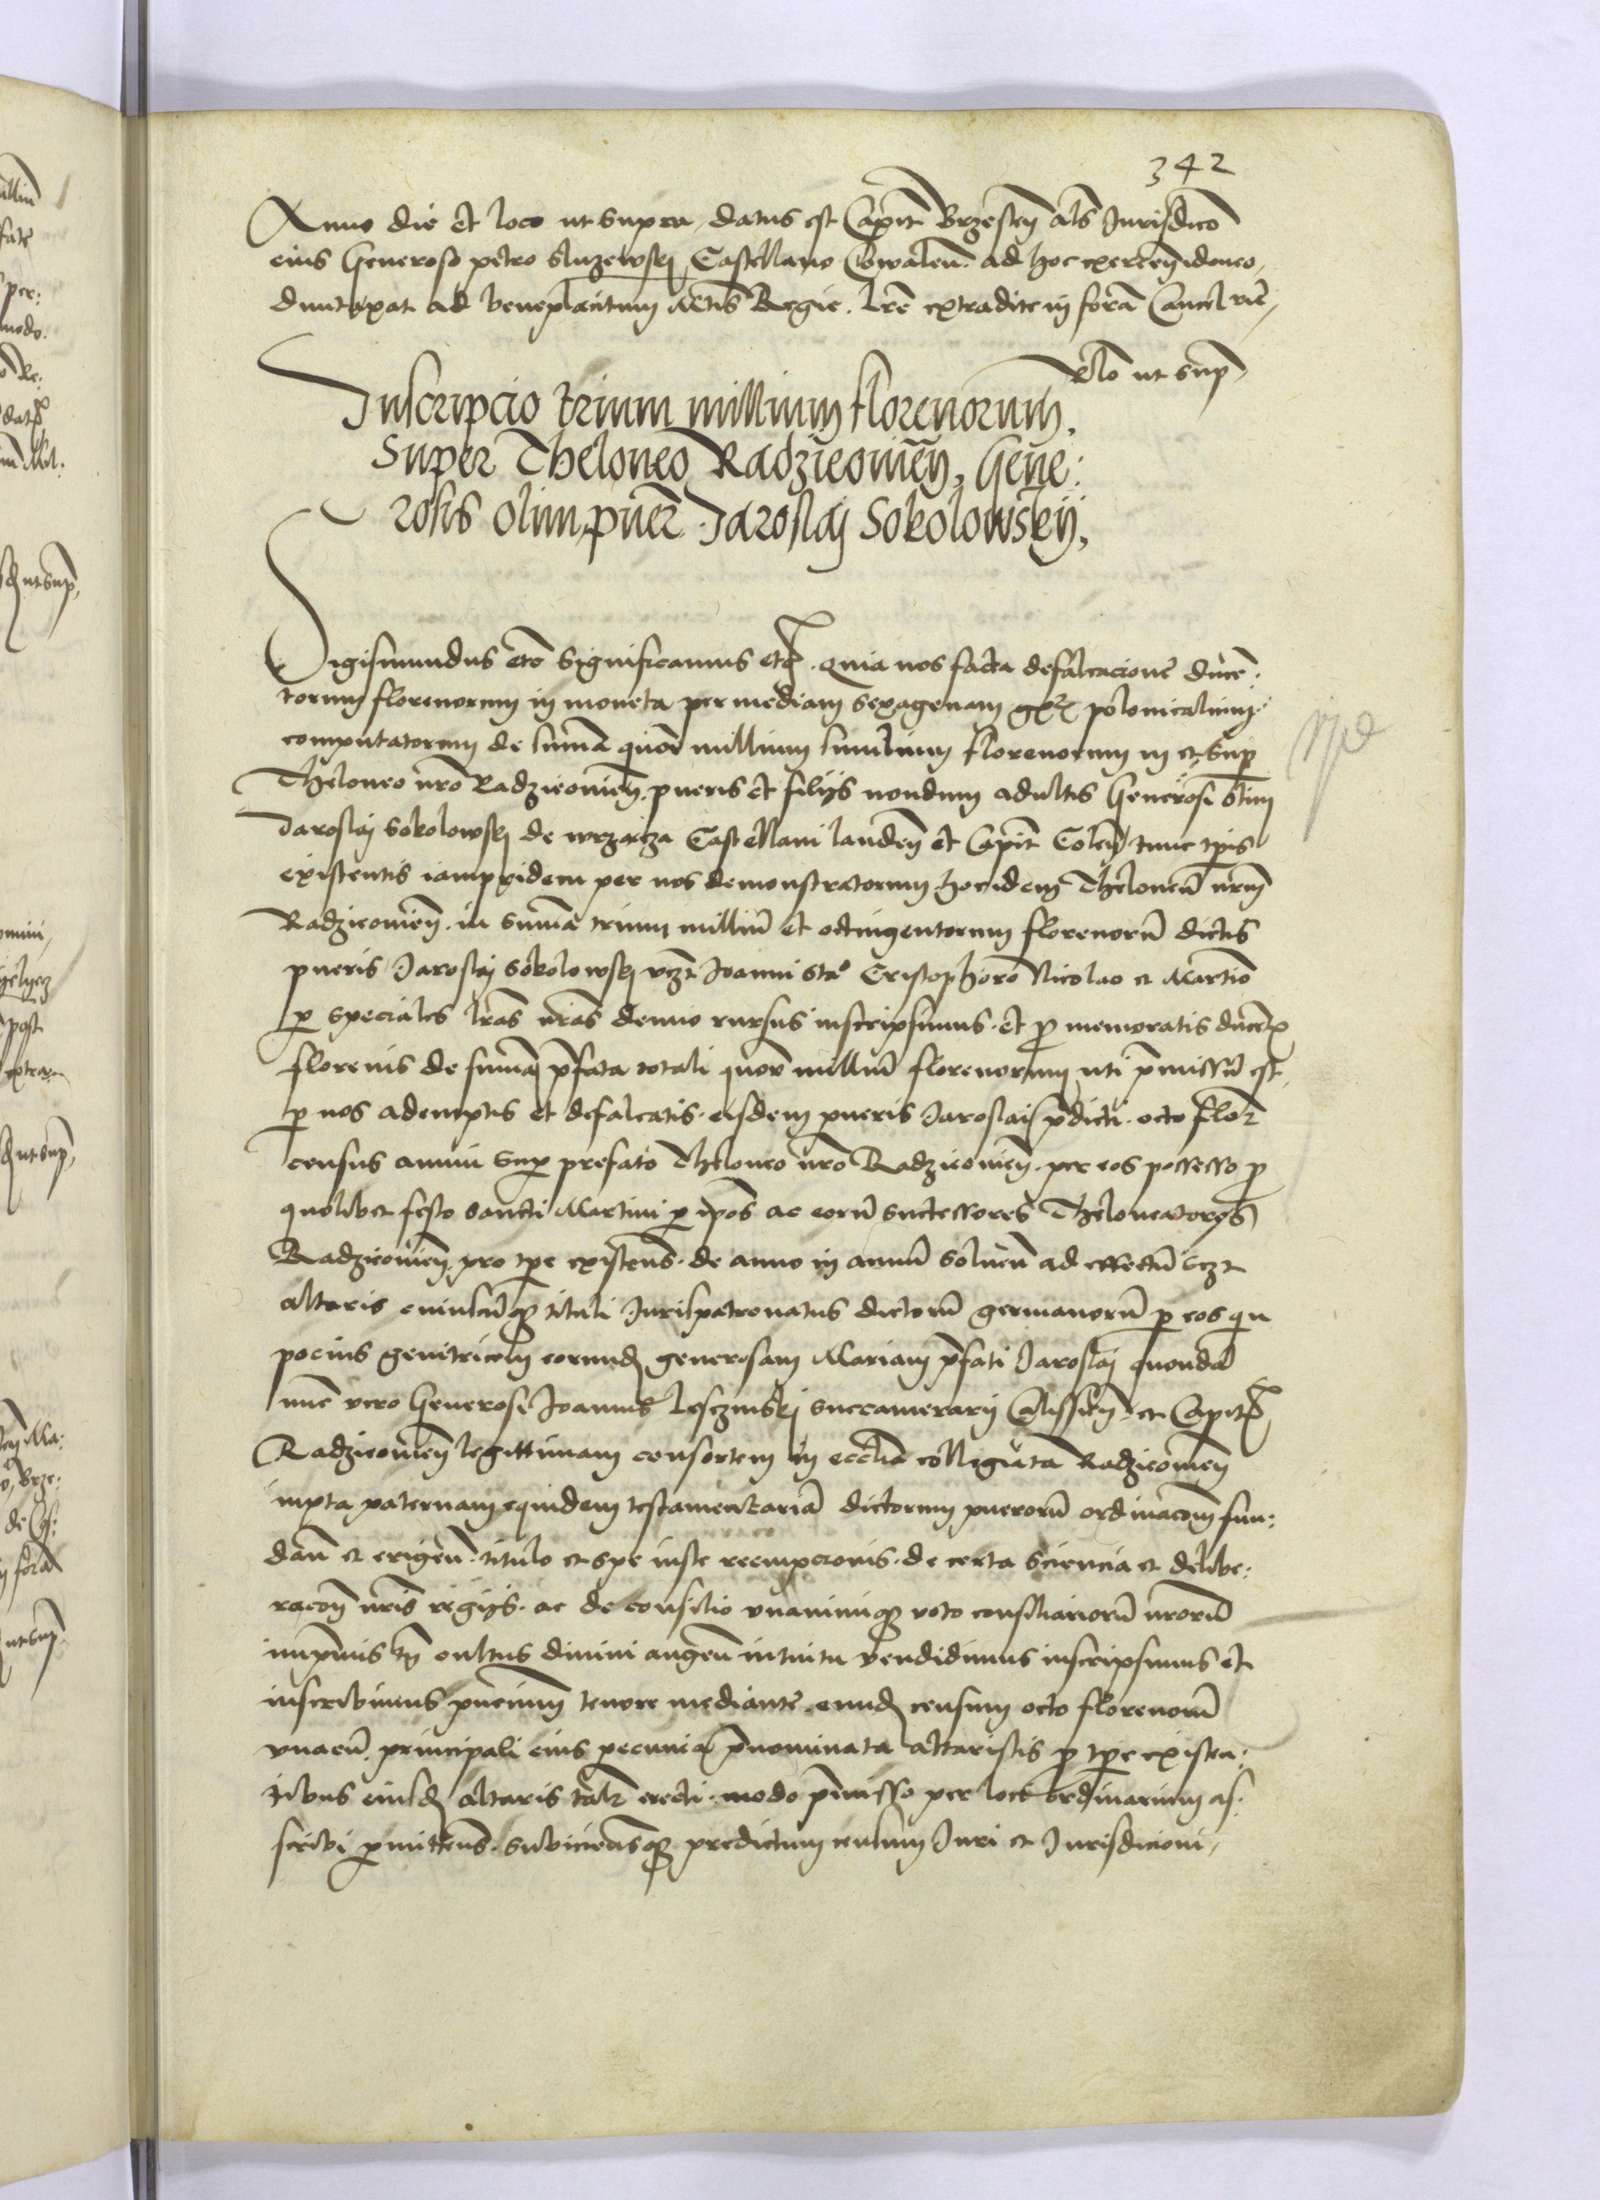 342
Anno die et loco ut supra, datus est Capit Brzesten als Jurisdico
eius Generoso petro Sluzewskj Castellano Cowalen. ad hoc exercen idoneo,
duntaxat ad beneplacitum Mtis Regie. lre extradite in fora Cancelrie,
Rlo ut sup,
Inscripcio trium millium florenorum,
super Theloneo Radzieouien, Gene:
rosis olim puer Jaroslaj Sokolowskij,
Sigismundus etc Significamus etc. quia nos facta defalcacione ducen:
torum florenorum in moneta per mediam sexagenam polonicalium
computatorum de suma quor millium similium florenorum in et sup
Theloneo nro Radzieouien, pueris et filijs nondum adultis Generosi olim
Jaroslaj Sokolowskj de wrzacza Castellani landen et Capit Colen tunc tpis
existentis iampridem per nos demonstratorum hoc idem Theloneu nrm
Radzieouien. in summa trium milliu et octingentorum florenoru dictis
pueris Jaroslaj Sokolowskj vczt Joanni Sta° Cristophoro Nicolao et Martino
p speciales lras nras denuo rursus inscripsimus. et p memoratis ducen
florenis de suma pfata totali quor milliu florenorum uti pmissu est,
p nos ademptis et defalcatis. eisdem pueris Jaroslaj pdicti. octo flor
census annui sup prefato Theloneo nro Radzieouien. per eos possesso p
quolibet festo Sancti Martini p ipos ac eoru successores Theloneatores
Radzieouien, pro tpe existens. de anno in annu soluen ad effectu vczt
altaris cuiuscuq tituli Jurispatronatus dictoru germanoru p eos qu
pocius genitricem eorund generosam Mariam pfati Jaroslaj quonda
nuc vero Generosi Joannis Lesczinskj succamerarij Calissien et Capit
Radzieouien legittimam consortem in ecclia colligiata Radzieouien
iuxta paternam equidem testamentaria dictorum pueroru ordinacom fun:
dan et erigen. titulo et spe iuste reempcionis. de certa sciencia et delibe:
racom nris regijs. ac de consilio vnanimiq voto consiliarioru nroru
inpmis tn cultus diuini augen intuitu vendidimus inscripsimus et
inscribimus pncium tenore mediante. eund censum octo florenoru
vnacu principali eius pecunia pnominata altaristis p tpe existen:
tibus eiusd altaris talr erecti. modo pmisso per loci ordinarium as:
scribi pmittens. subiiciensq predictum censum Juri et Jurisdicioni,